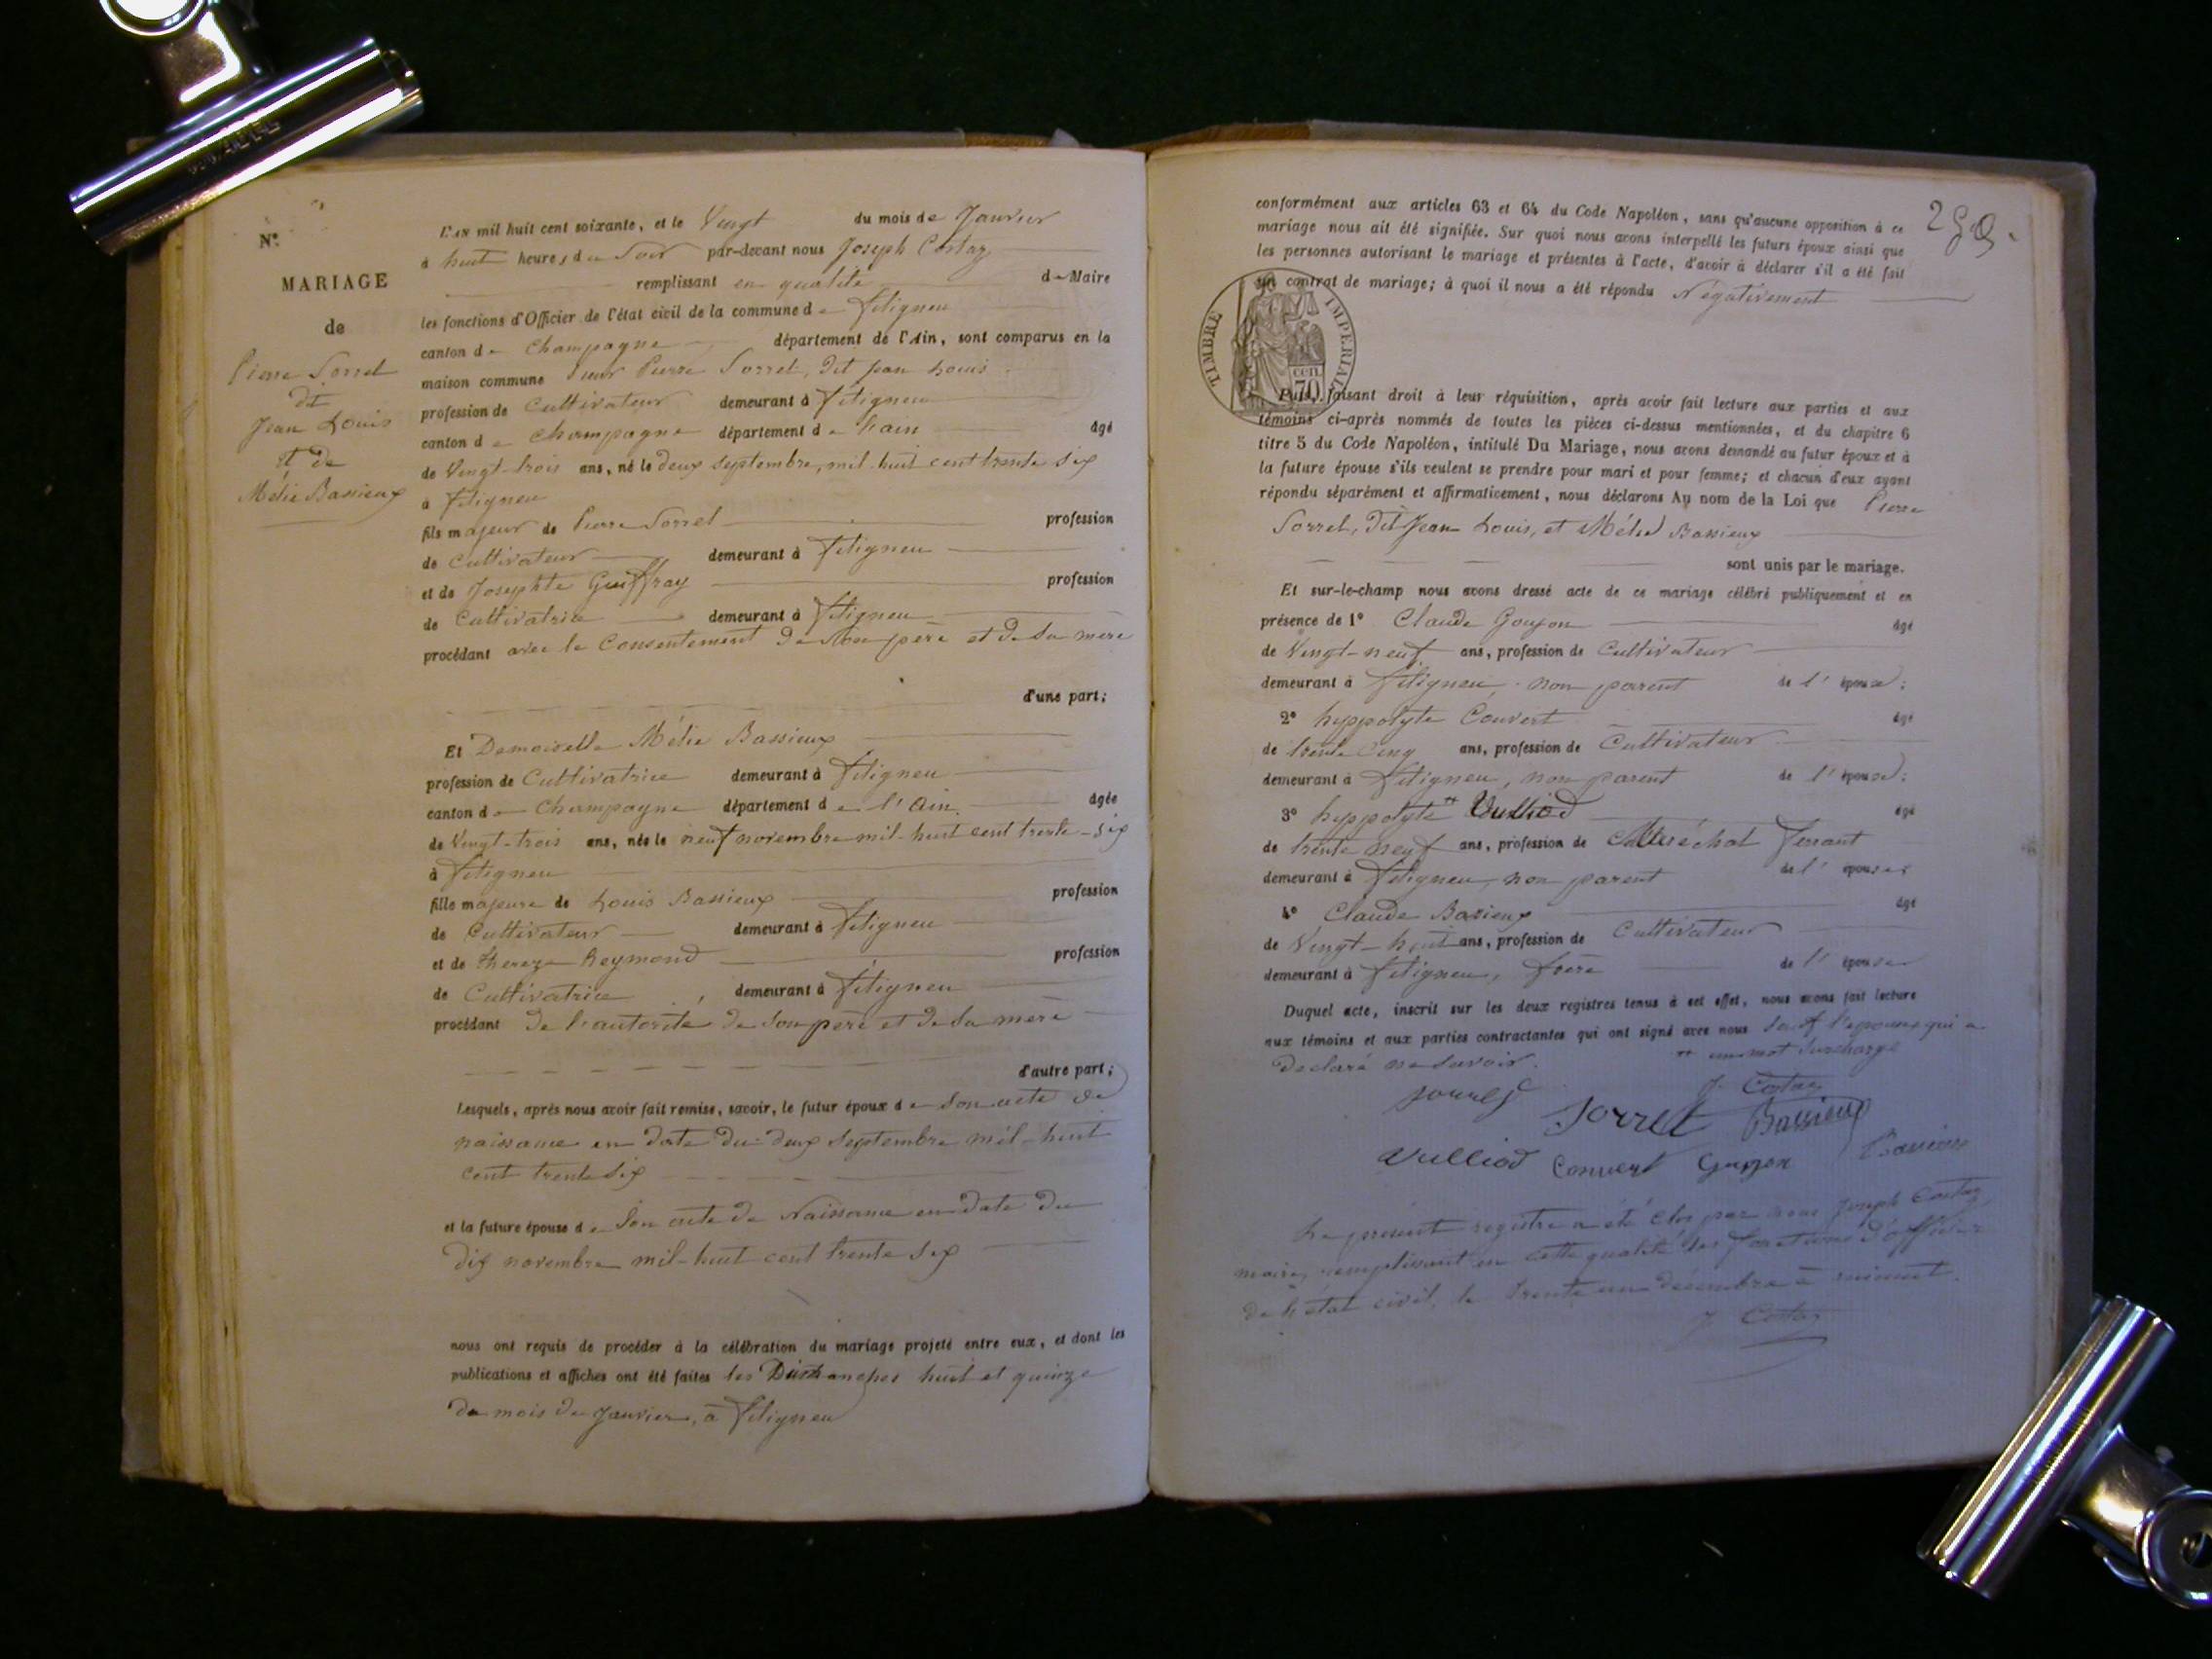 N°.
MARIAGE
de
Pierre Sorret
dit
Jean Louis
et de
Mélie Bassieux
L'AN mil huit cent soixante, et le Vingt du mois de Janvier
à huit heures du Soir par-devant nous Joseph Costaz
remplissant en qualité de Maire
les fonctions d'Officier de l'état civil de la commune de Fitigneu
canton de Champagne département de l'Ain, sont comparus en la
maison commune Sieur Pierre Sorret, dit Jean Louis
profession de Cultivateur demeurant à Fitigneu
canton de Champagne département de l'ain âgé
de Vingt-trois ans, né le deux septembre, mil-huit cent trente six
à Fitigneu
fils majeur de Pierre Sorret profession
de Cultivateur demeurant à Fitigneu
et de Josephte Guiffray profession
de Cultivatrice demeurant à Fitigneu
procédant avec le Consentement de son père et de sa mère
d'une part;
Et Demoiselle Mélie Bassieux
profession de Cultivatrice demeurant à Fitigneu
canton de Champagne département de l'ain âgée
de Vingt-trois ans, née le neuf novembre mil-huit cent trente-six
à Fitigneu
fille majeure de Louis Bassieux profession
de Cultivateur demeurant à Fitigneu
et de Thereze Reymond profession
de Cultivatrice demeurant à Fitigneu
procédant de l'autorité de son père et de sa mère
d'autre part;
Lesquels, après nous avoir fait remise, savoir, le futur époux de Son acte de
naissance en date du deux septembre mil-huit
cent trente six
et la future épouse de Son acte de Naissance en date du
dix novembre mil-huit cent trente six
nous ont requis de procéder à la célébration du mariage projeté entre eux, et dont les
publications et affiches ont été faites les Dimanches huit et quinze
du mois de Janvier, à Fitigneu
conformément aux articles 63 et 64 du Code Napoléon, sans qu'aucune opposition à ce
mariage nous ait été signifiée. Sur quoi nous avons interpellé les futurs époux ainsi que
les personnes autorisant le mariage et présentes à l'acte, d'avoir à déclarer s'il a été fait
un contrat de mariage; à quoi il nous a été répondu Négativement
TIMBRE IMPERIAL
cen. 70
Puis, faisant droit à leur réquisition, après avoir fait lecture aux parties et aux
témoins ci-après nommés de toutes les pièces ci-dessus mentionnées, et du chapitre 6
titre 5 du Code Napoléon, intitulé Du Mariage, nous avons demandé au futur époux et à
la future épouse s'ils veulent se prendre pour mari et pour femme; et chacun d'eux ayant
répondu séparément et affirmativement, nous déclarons Au nom de la Loi que Pierre
Sorret, dit Jean Louis, et Mélie Bassieux
sont unis par le mariage.
Et sur-le-champ nous avons dressé acte de ce mariage célébré publiquement et en
présence de 1° Claude Goujon âgé
de Vingt-neuf ans, profession de Cultivateur
demeurant à Fitigneu, non parent de l'épouse;
2° hyppolyte Convert âgé
de trente cinq ans, profession de Cultivateur
demeurant à Fitigneu, non parent de l'épouse;
3° hyppolyte Vulliod âgé
de trente neuf ans, profession de Maréchal ferrant
demeurant à Fitigneu, non parent de l'épouse
4° Claude Bassieux âgé
de Vingt-huit ans, profession de Cultivateur
demeurant à Fitigneu, frère de l'épouse
Duquel acte, inscrit sur les deux registres tenus à cet effet, nous avons fait lecture
aux témoins et aux parties contractantes qui ont signé avec nous Sauf l'épouse qui a
declaré ne Savoir. un mot surchargé
J. Costaz
Sorret Bassieux
Vulliod Convert Goujon Bassieux
Le présent registre a été clos par nous Joseph Costaz
maire, remplissant en cette qualité les fonctions d'officier
de l'état civil, le trente un décembre à minuit.
J. Costaz